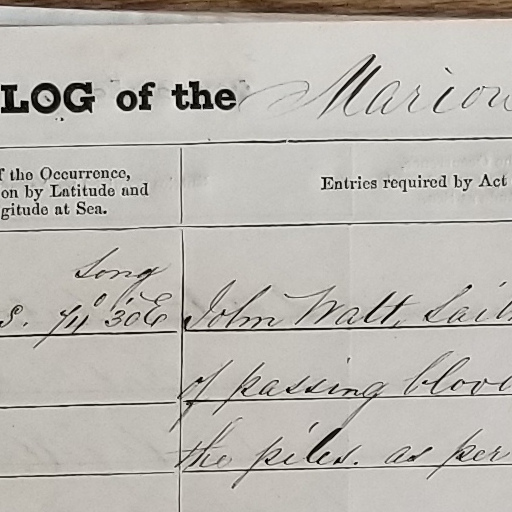 LOG of the Marion
f the Occurrence,
on by Latitude and
gitude at Sea.
Entries required by Act
Long
S. 74° 30' E John Watt, Sail
of passing blood
the piles. as per